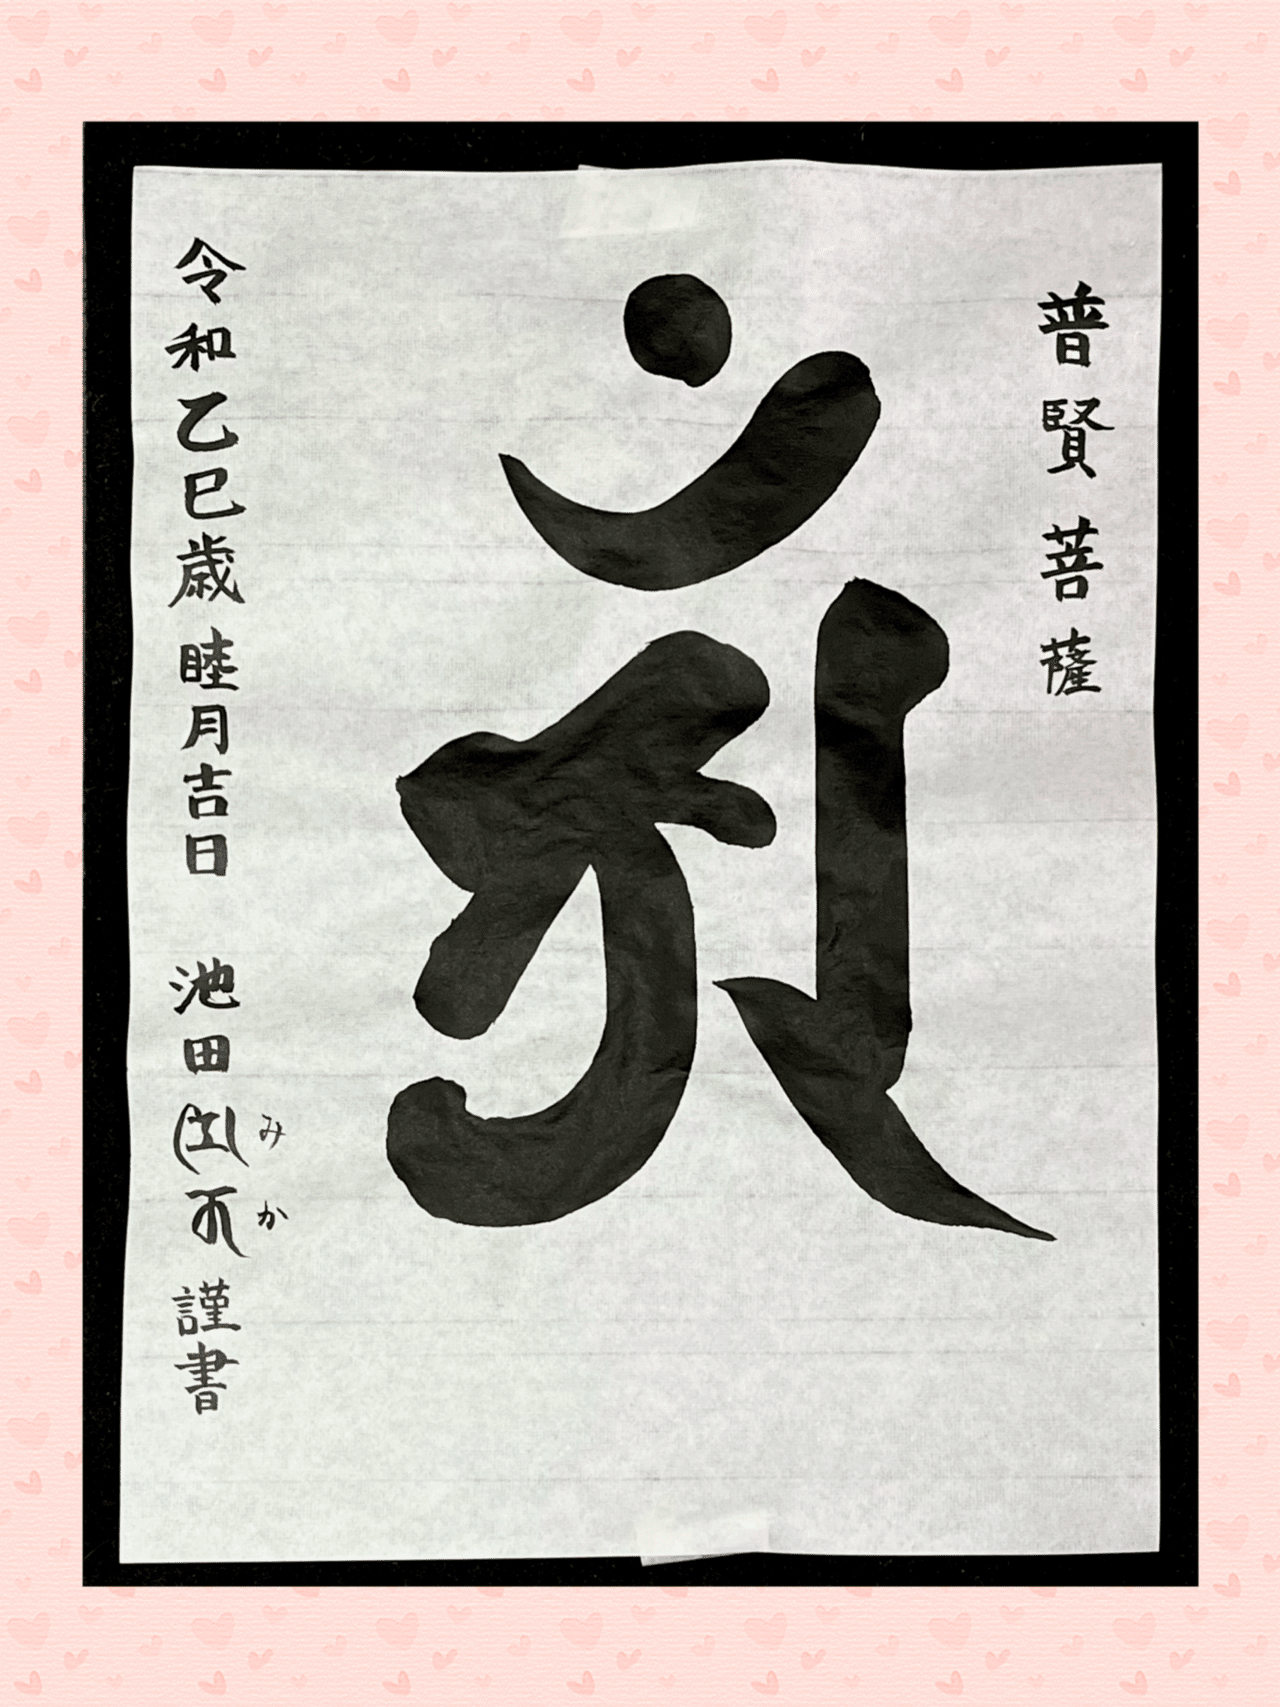 普賢菩薩
अं
令和乙巳歳睦月吉日 池田 謹書
みか